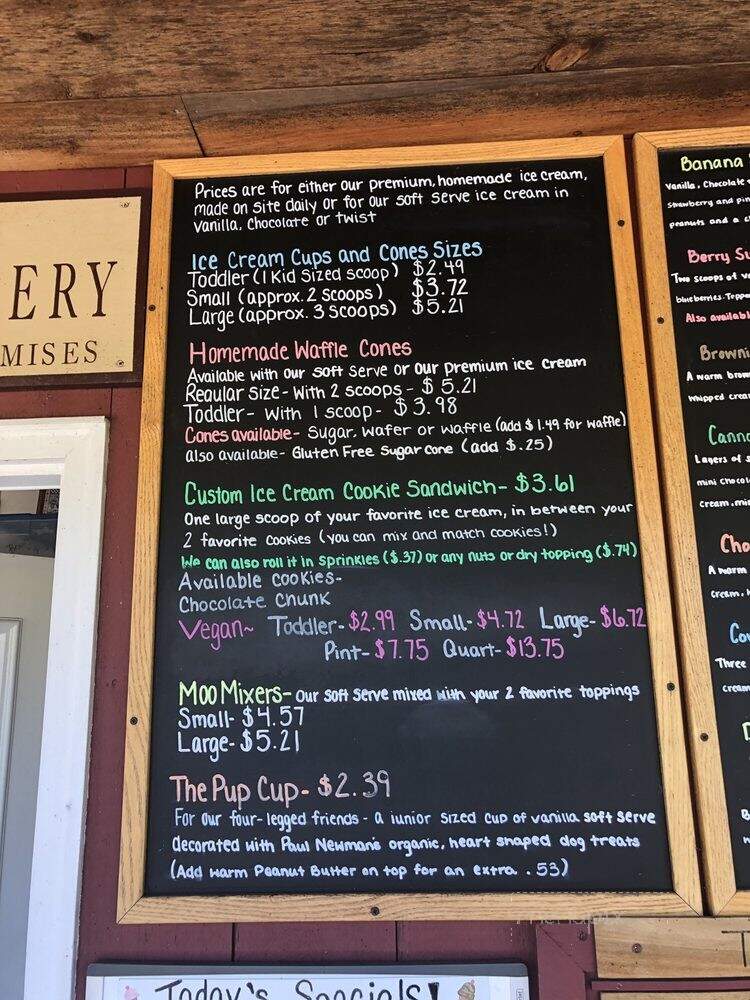 Prices are for either our premium, homemade ice cream,
made on site daily or for our soft serve ice cream in
vanilla, chocolate or twist
Ice Cream Cups and Cones Sizes
Toddler (1 Kid Sized scoop) $2.49
Small (approx. 2 scoops) $3.72
Large (approx. 3 scoops) $5.21
Homemade Waffle Cones
Available with our soft serve or our premium ice cream
Regular Size - with 2 scoops - $5.21
Toddler - with 1 scoop - $3.98
Cones available - Sugar, wafer or waffle (add $1.49 for waffle)
also available - Gluten Free Sugar Cone (add $.25)
Custom Ice Cream Cookie Sandwich - $3.61
One large scoop of your favorite ice cream, in between your
2 favorite cookies (you can mix and match cookies!)
We can also roll it in sprinkles ($.37) or any nuts or dry topping ($.74)
Available cookies-
Chocolate Chunk
Vegan~ Toddler-$2.99 Small-$4.72 Large-$6.72
Pint-$7.75 Quart-$13.75
Moo Mixers- our soft serve mixed with your 2 favorite toppings
Small- $4.57
Large- $5.21
The Pup Cup- $2.39
For our four-legged friends - a junior sized cup of vanilla soft serve
decorated with Paul Newman's organic, heart shaped dog treats
(Add warm Peanut Butter on top for an extra .53)
ERY
MISES
Banana
Vanilla, Chocolate
Strawberry and pin
peanuts and a c
Berry Su
Two scoops of va
blueberries. Topp
Also availabl
Browni
A warm brow
whipped crea
Canno
Layers of s
mini chocol
cream, mi
Cho
A warm
cream,
Co
Three
cream
Today's Specials!